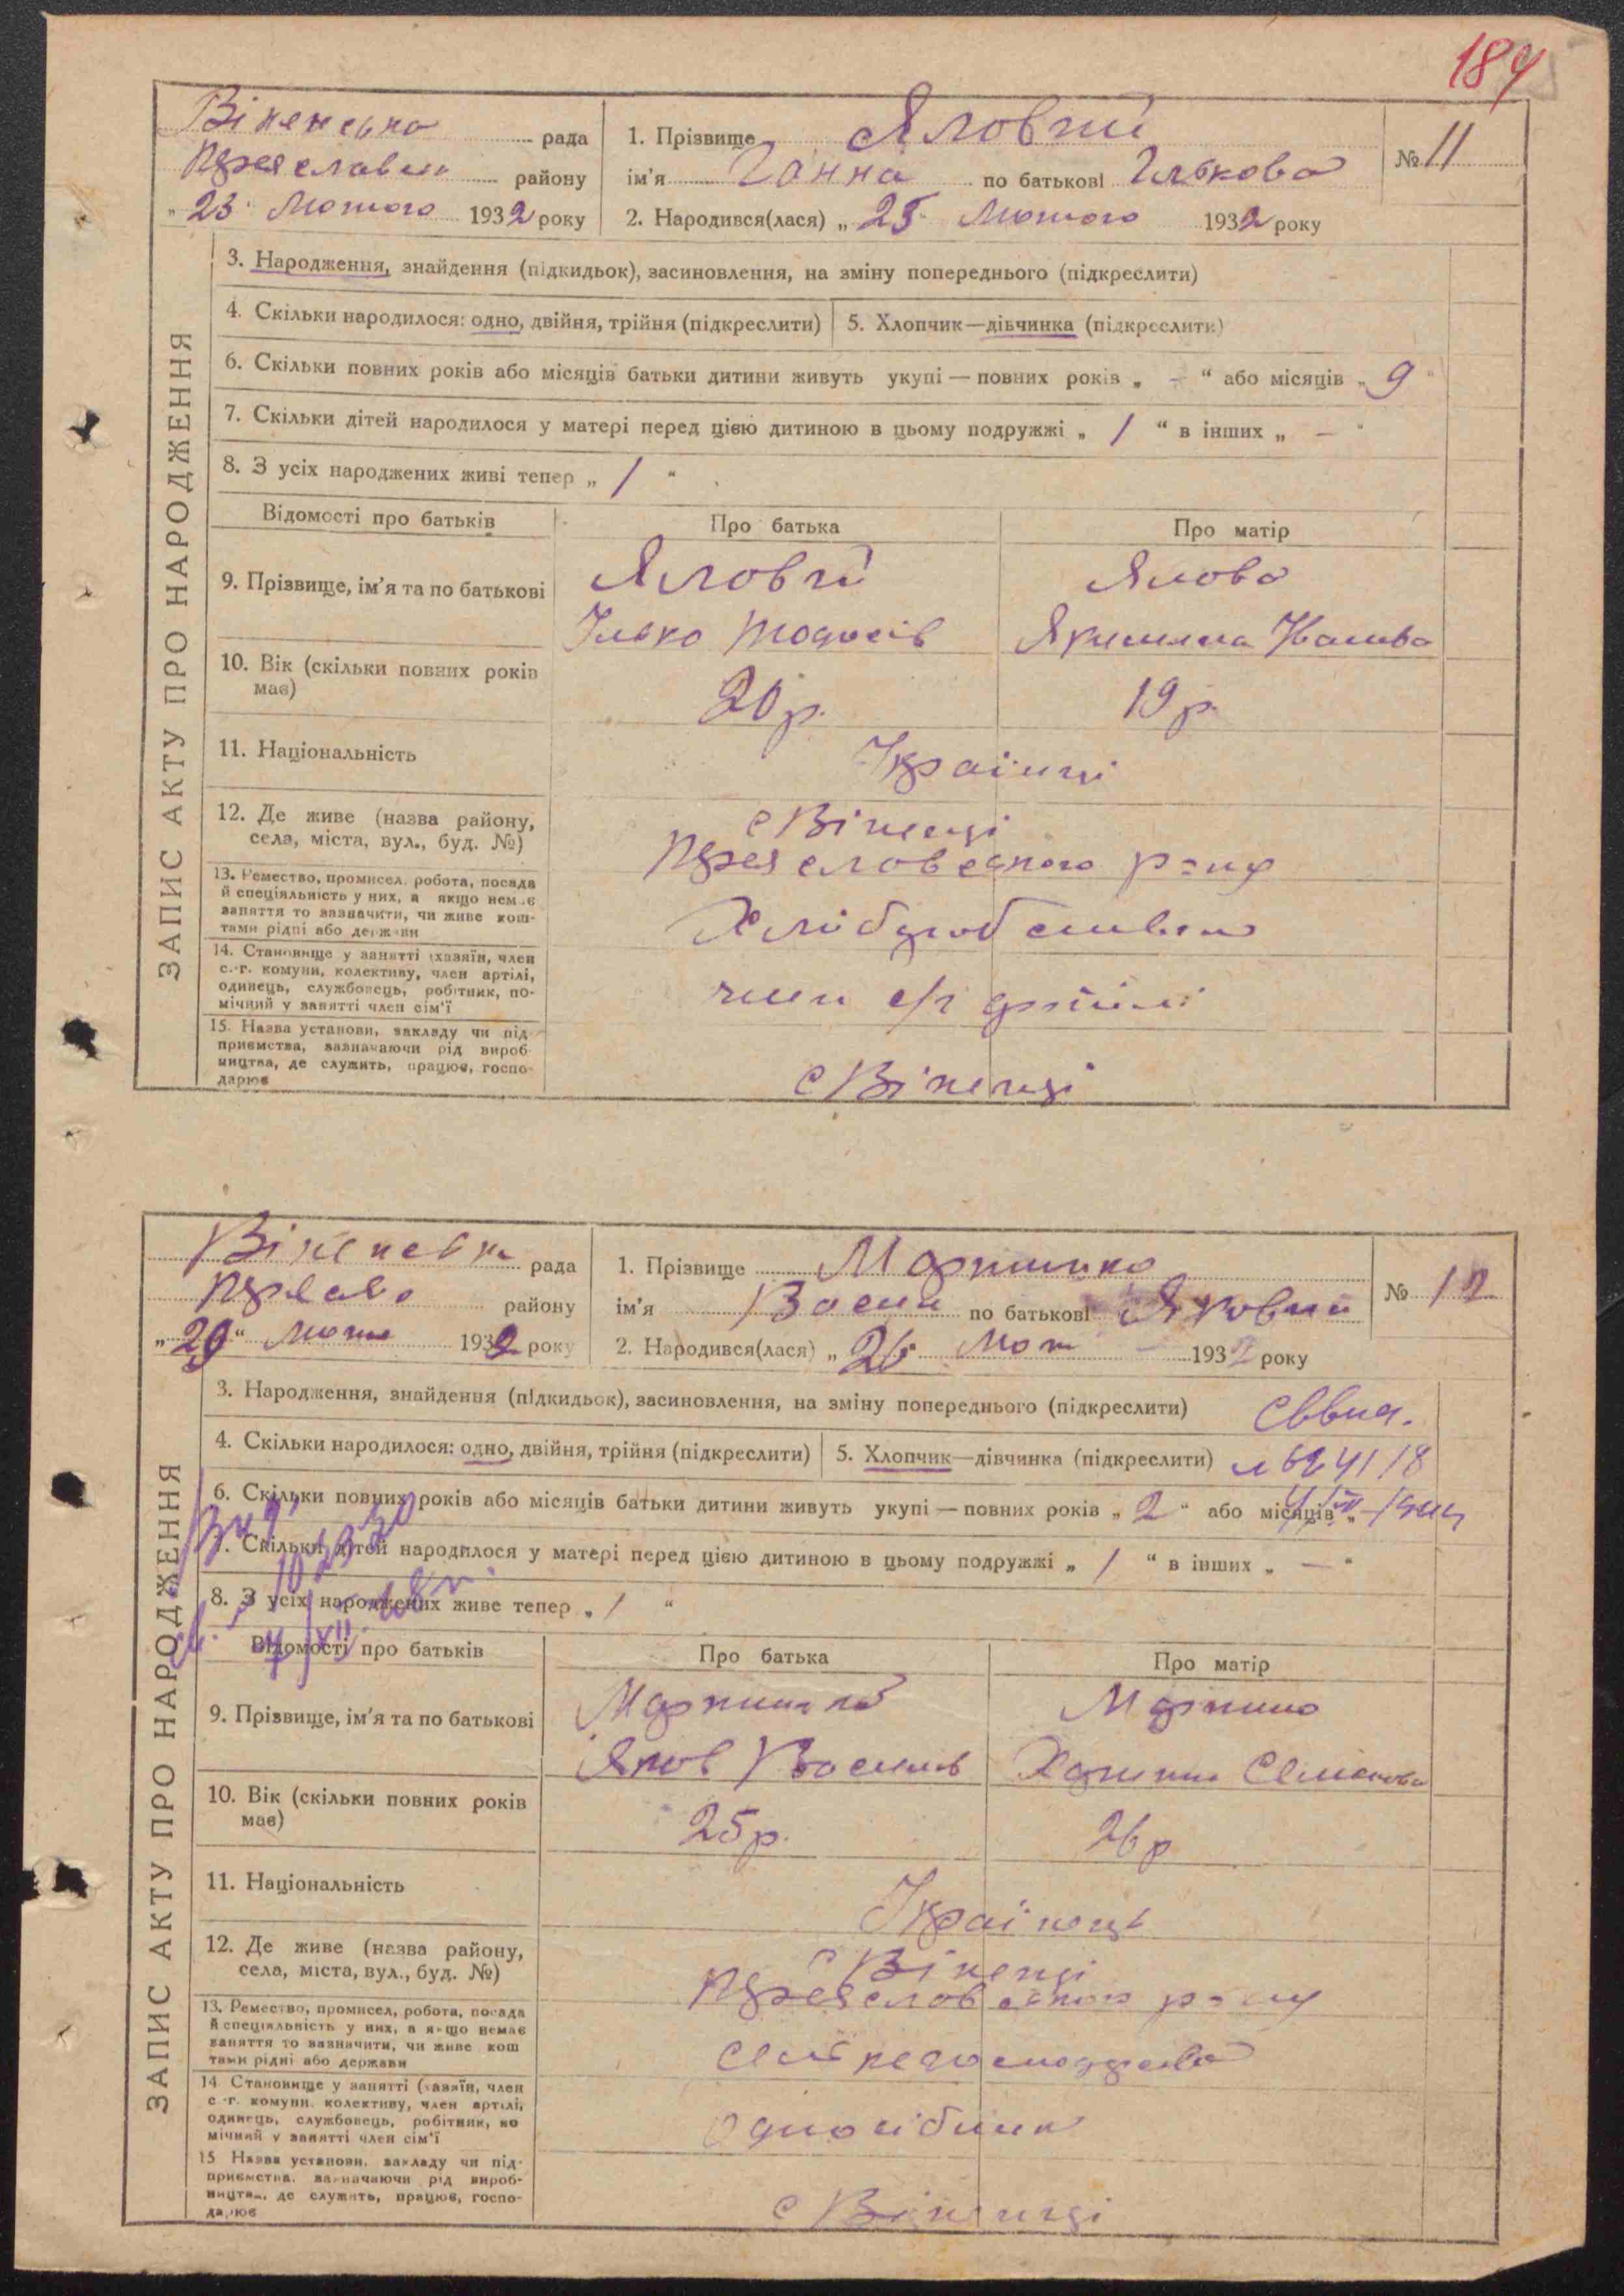 184
Віненська рада
Переяславськ району
„ 23 " Лютого 1932 року
1. Прізвище Яловий
ім'я Ганна по батькові Ількова
2. Народився(лася) „ 25 Лютого 1932 року
№ 11
ЗАПИС АКТУ ПРО НАРОДЖЕННЯ
3. Народження, знайдення (підкидьок), засиновлення, на зміну попереднього (підкреслити)
4. Скільки народилося: одно, двійня, трійня (підкреслити)
5. Хлопчик—дівчинка (підкреслити)
6. Скільки повних років або місяців батьки дитини живуть укупі — повних років „ - “ або місяців „ 9 "
7. Скільки дітей народилося у матері перед цією дитиною в цьому подружжі „ 1 “ в інших „ — "
8. З усіх народжених живі тепер „ 1 “
Відомості про батьків
Про батька
Про матір
9. Прізвище, ім'я та по батькові
Яловий
Ілько Тодосів
Ялова
Якилина Іванова
10. Вік (скільки повних років
має)
20 р.
19 р.
11. Національність
Українці
12. Де живе (назва району,
села, міста, вул., буд. №)
с Віненці
Переяславського р-ну
13. Ремество, промисел, робота, посада
й спеціяльність у них, а якщо немає
заняття то зазначити, чи живе кош-
тами рідні або держави
Хліборобство
14. Становище у занятті (хазяїн, член
с.-г. комуни, колективу, член артілі,
одинець, службовець, робітник, по-
мічний у занятті член сім'ї
член с/г артілі
15. Назва установи, закладу чи під-
приємства, зазначаючи рід вироб-
ництва, де служить, працює, госпо-
дарює
с Віненці
Віненськ рада
району
„ 29 “ Лютого 1932 року
1. Прізвище Мартинко
ім'я Васил по батькові Якович
2. Народився(лася) „ 26 Лют 1932 року
№ 12
ЗАПИС АКТУ ПРО НАРОДЖЕННЯ
3. Народження, знайдення (підкидьок), засиновлення, на зміну попереднього (підкреслити)
4. Скільки народилося: одно, двійня, трійня (підкреслити)
5. Хлопчик—дівчинка (підкреслити)
6. Скільки повних років або місяців батьки дитини живуть укупі — повних років „ 2 “ або місяців „
7. Скільки дітей народилося у матері перед цією дитиною в цьому подружжі „ 1 “ в інших „ — “
8. З усіх народжених живе тепер „ 1 “
Відомості про батьків
Про батька
Про матір
9. Прізвище, ім'я та по батькові
Мартинко
Яков Василів
Семенова
10. Вік (скільки повних років
має)
25 р.
26 р
11. Національність
Українець
12. Де живе (назва району,
села, міста, вул., буд. №)
с Віненці
Переяславського р-ну
13. Ремество, промисел, робота, посада
й спеціяльність у них, а якщо немає
заняття то зазначити, чи живе кош
тами рідні або держави
14. Становище у занятті (хазяїн, член
с.-г. комуни, колективу, член артілі,
одинець, службовець, робітник, по
мічний у занятті член сім'ї
одноосібник
15 Назва установи, закладу чи під-
приємства, зазначаючи рід вироб-
ництва, де служить, працює, госпо-
дарює
с Віненці